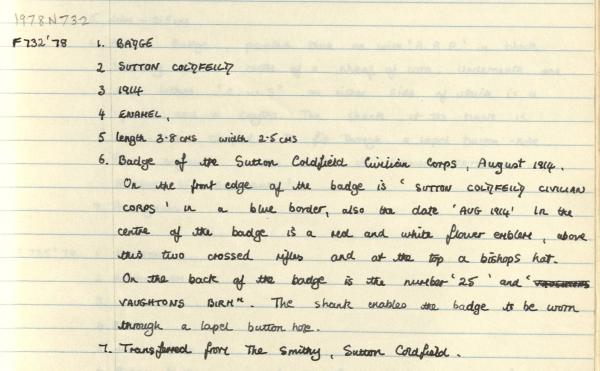 1978N732
F732'78 1. BADGE
2 SUTTON COLDFIELD
3 1914
4 ENAMEL.
5 length 3.8 cms width 2.5 cms
6. Badge of the Sutton Coldfield Civilian Corps, August 1914.
On the front edge of the badge is 'SUTTON COLDFIELD CIVILIAN
CORPS' in a blue border, also the date 'AUG 1914' in the
centre of the badge is a red and white flower emblem, above
this two crossed rifles and at the top a bishops hat.
On the back of the badge is the number '25' and '
VAUGHTONS BIRMᴹ. The shank enables the badge to be worn
through a lapel button hole.
7. Transferred from The Smithy, Sutton Coldfield.